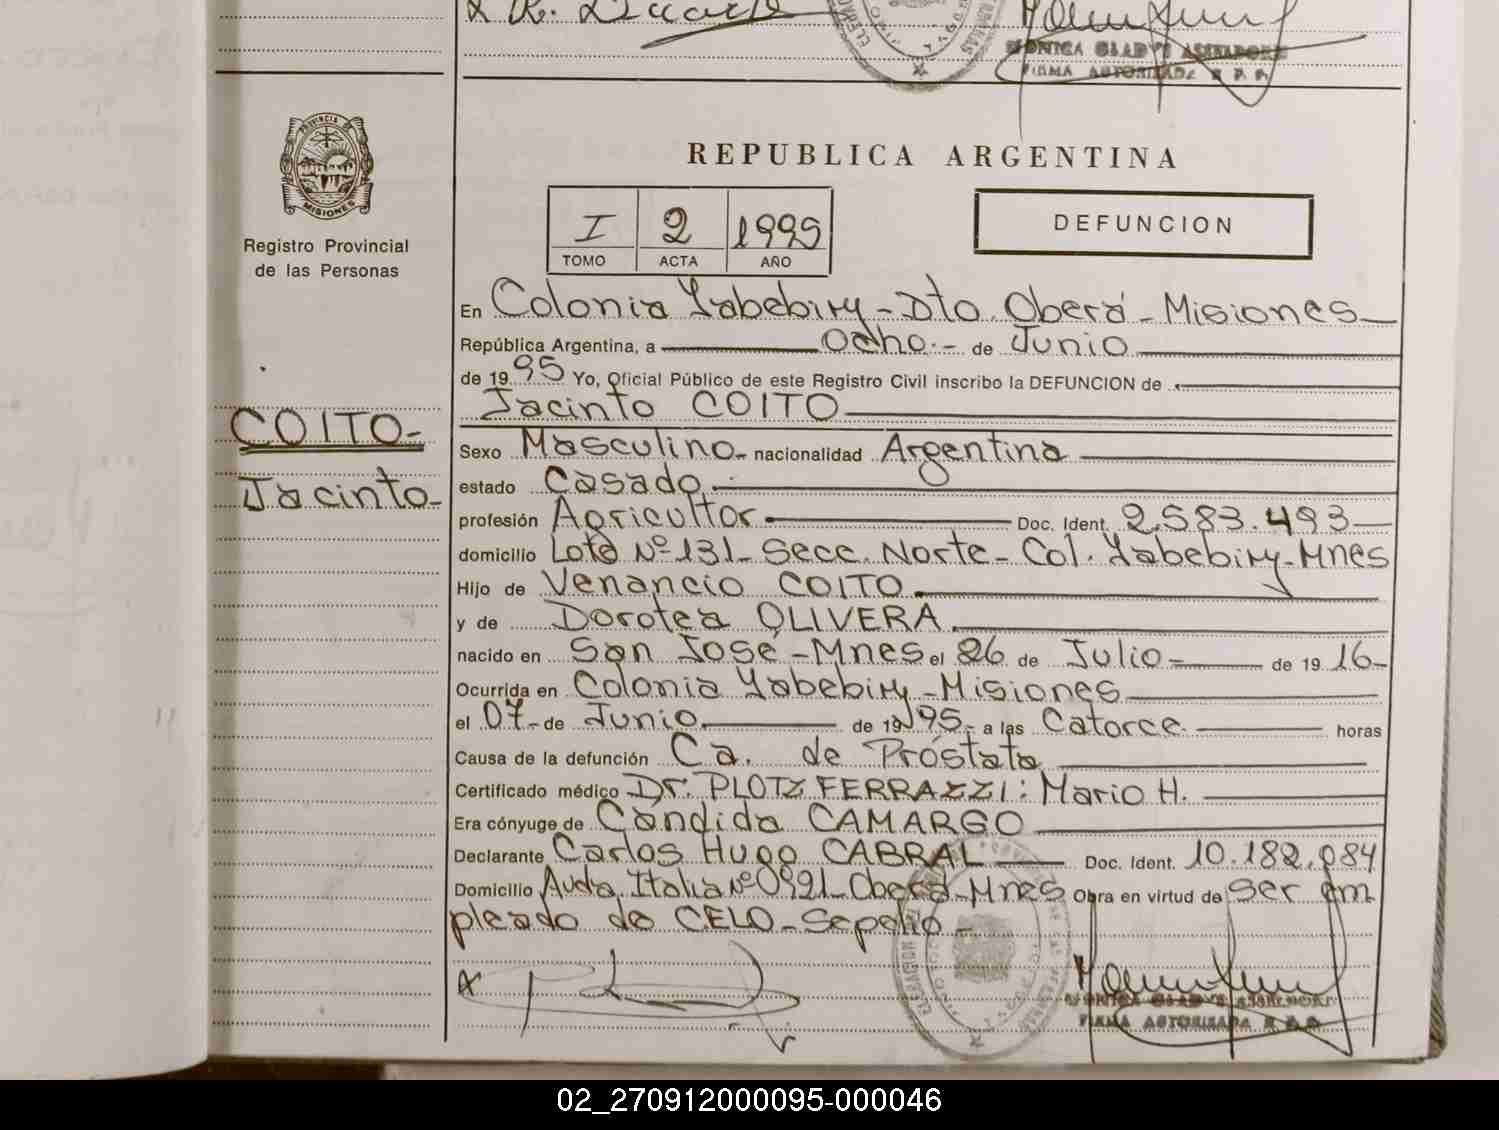 MONICA GLADYS
FIRMA AUTORIZADA R. P. P.
PROVINCIA DE
MISIONES
Registro Provincial
de las Personas
COITO-
Jacinto-
REPUBLICA ARGENTINA
I 2 1995
TOMO ACTA AÑO
DEFUNCION
En Colonia Yabebiry - Dto. Oberá - Misiones
República Argentina, a Ocho.- de Junio
de 1995 Yo, Oficial Público de este Registro Civil inscribo la DEFUNCION de
Jacinto COITO
Sexo Masculino- nacionalidad Argentina
estado Casado.
profesión Agricultor Doc. Ident. 2.583.493
domicilio Lote Nº 131- Secc. Norte- Col. Yabebiry-Mnes
Hijo de Venancio COITO.
y de Dorotea OLIVERA.
nacido en San José -Mnes el 26 de Julio- de 1916-
Ocurrida en Colonia Yabebiry -Misiones
el 07- de Junio. de 1995- a las Catorce. horas
Causa de la defunción Ca. de Próstata
Certificado médico Dr. PLOTZ FERRAZZI: Mario H.
Era cónyuge de Candida CAMARGO
Declarante Carlos Hugo CABRAL Doc. Ident. 10.182.084
Domicilio Avda. Italia Nº 0321- Oberá-Mnes Obra en virtud de Ser em
pleado de CELO - Sepelio-
MONICA GLADYS
FIRMA AUTORIZADA R. P. P.
02_270912000095-000046